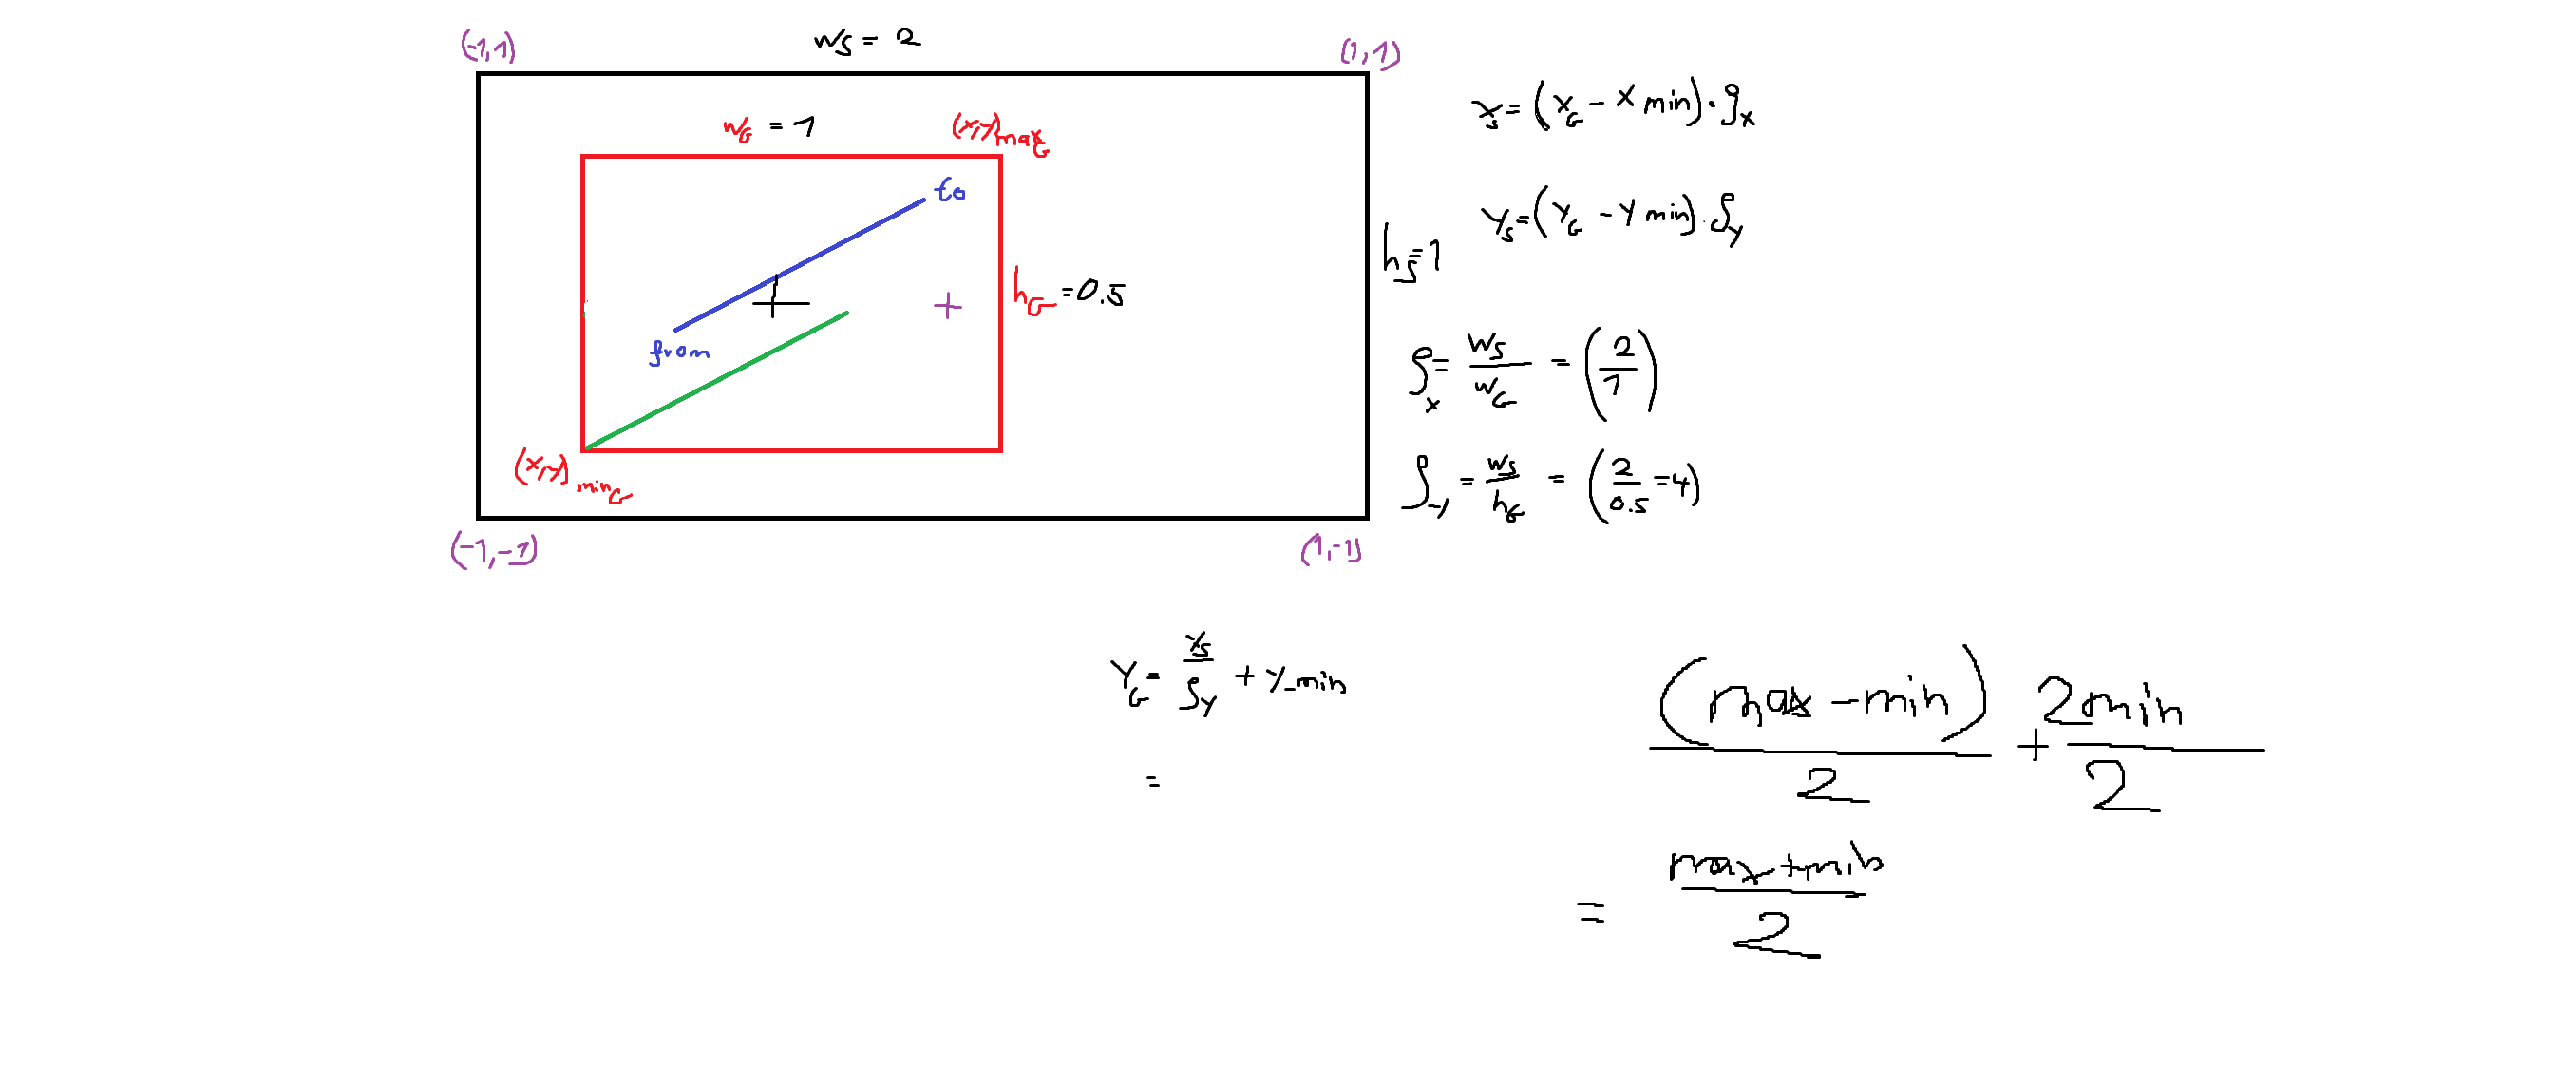 (-1,1)
w_S = 2
(1,1)
w_G = 1
(x,y)_max_G
to
from
h_G = 0.5
(x,y)_min_G
(-1,-1)
(1,-1)
h_S = 1
x_S = (x_G - x min) · ρ_x
y_S = (y_G - y min) · ρ_y
ρ_x = w_S / w_G = (2/1)
ρ_y = w_S / h_G = (2/0.5 = 4)
y_G = x_S / ρ_y + y_min
=
(max - min) / 2 + 2min / 2
= max + min / 2